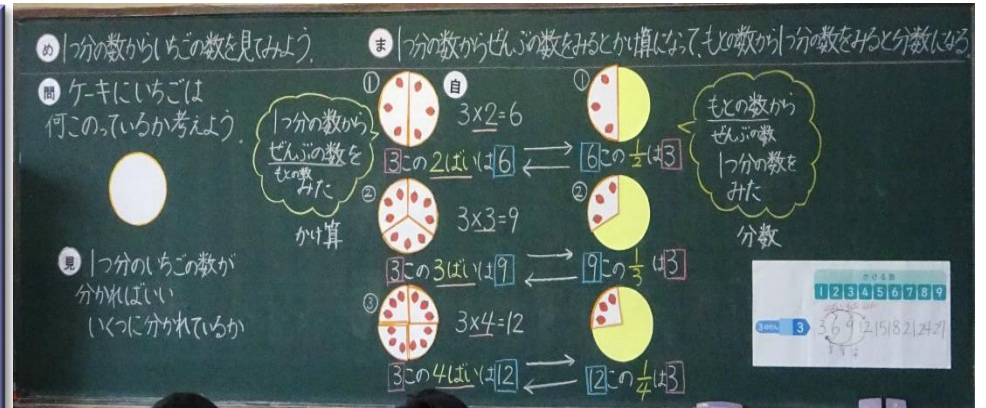 め 1つ分の数からいちごの数を見てみよう。
ま 1つ分の数からぜんぶの数をみるとかけ算になって、もとの数から1つ分の数をみると分数になる
問 ケーキにいちごは
何このっているか考えよう。
見 1つ分のいちごの数が
分かればいい
いくつに分かれているか
1つ分の数から
ぜんぶの数を
もとの数
みた
かけ算
自
①
3×2=6
3この2ばいは6
②
3×3=9
3この3ばいは9
③
3×4=12
3この4ばいは12
①
6この1/2は3
②
9この1/3は3
12この1/4は3
もとの数から
ぜんぶの数
1つ分の数を
みた
分数
かける数
1 2 3 4 5 6 7 8 9
3のだん 3 3 6 9 12 15 18 21 24 27